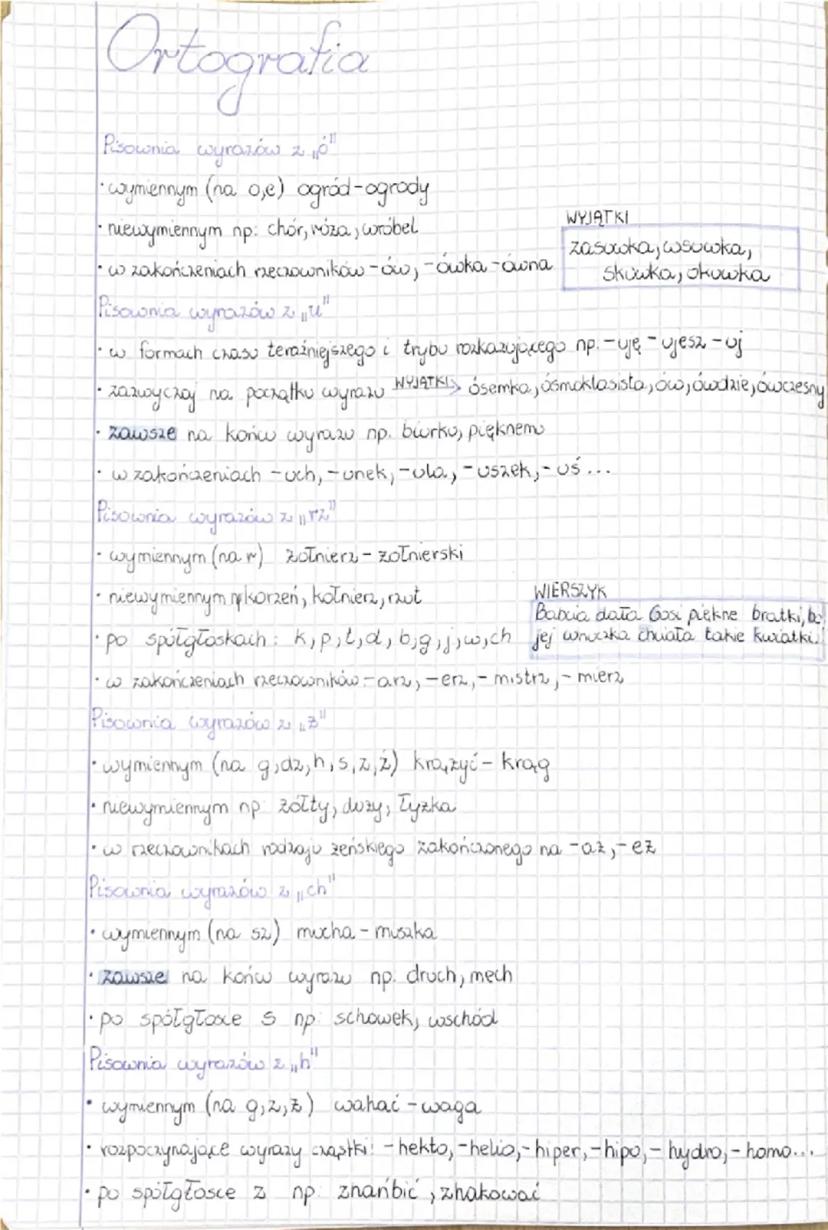 Ortografia
Pisownia wyrazów z „ó"
• wymiennym (na o,e) ogród-ogrody
• niewymiennym np: chór, róża, wróbel
WYJĄTKI
zasuwka, wsuwka,
skuwka, okuwka
• w zakończeniach rzeczowników -ów, -ówka -ówna
Pisownia wyrazów z „u"
• w formach czasu teraźniejszego i trybu rozkazującego np. -uję -ujesz -uj
• zazwyczaj na początku wyrazu WYJĄTKI> ósemka, ósmoklasista, ów, ówdzie, ówczesny
• zawsze na końcu wyrazu np. biurku, pięknemu
• w zakończeniach -uch, -unek, -ula, -uszek, -uś...
Pisownia wyrazów z „rz"
• wymiennym (na r) żołnierz - żołnierski
• niewymiennym np korzeń, kołnierz, rzut
WIERSZYK
Babcia dała Gosi piękne bratki, bo
jej wnuczka chciała takie kwiatki.
• po spółgłoskach: k, p, t, d, b, g, j, w, ch
• w zakończeniach rzeczowników -arz, -erz, -mistrz, -mierz
Pisownia wyrazów z „ż"
• wymiennym (na g, dz, h, s, z, ź) krążyć - krąg
• niewymiennym np żółty, duży, łyżka
• w rzeczownikach rodzaju żeńskiego zakończonego na -aż, -eż
Pisownia wyrazów z „ch"
• wymiennym (na sz) mucha - muszka
• zawsze na końcu wyrazu np. druch, mech
• po spółgłosce s np schowek, wschód
Pisownia wyrazów z „h"
• wymiennym (na g, z, ż) wahać - waga
• rozpoczynające wyrazy cząstki: -hekto, -helio, -hiper, -hipo, -hydro, -homo...
• po spółgłosce z np znańbić, zhakować